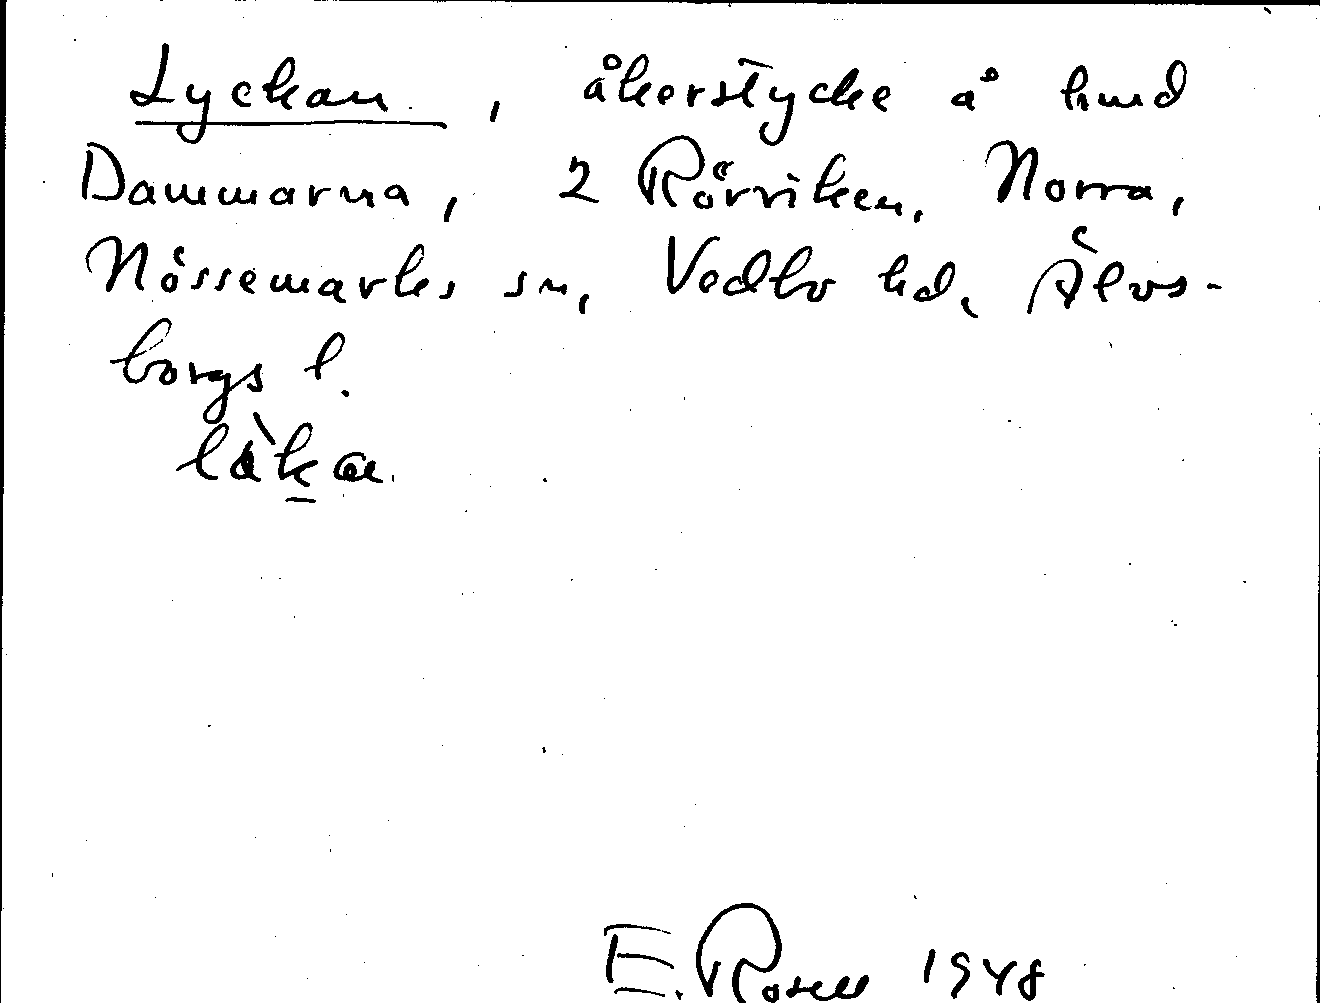 Lyckan, åkerstycke å hmd
Dammarna, 2 Rörviken, Norra,
Nössemarks sn, Vedbo hd, Älvs-
borgs l.
E. Rosell 1948